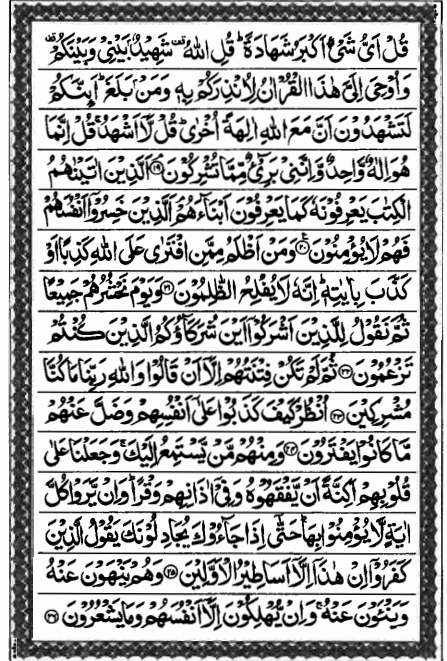 قُلْ اَیُّ شَیْءٍ اَكْبَرُ شَهَادَةً ؕ قُلِ اللّٰهُ ۙ۫ شَهِیْدٌۢ بَیْنِیْ وَبَیْنَكُمْ ۫
وَاُوْحِیَ اِلَیَّ هٰذَا الْقُرْاٰنُ لِاُنْذِرَكُمْ بِهٖ وَمَنْۢ بَلَغَ ؕ اَئِنَّكُمْ
لَتَشْهَدُوْنَ اَنَّ مَعَ اللّٰهِ اٰلِهَةً اُخْرٰی ؕ قُلْ لَّاۤ اَشْهَدُ ۚ قُلْ اِنَّمَا
هُوَ اِلٰهٌ وَّاحِدٌ وَّاِنَّنِیْ بَرِیْٓءٌ مِّمَّا تُشْرِكُوْنَ ۝۱۹ اَلَّذِیْنَ اٰتَیْنٰهُمُ
الْكِتٰبَ یَعْرِفُوْنَهٗ كَمَا یَعْرِفُوْنَ اَبْنَآءَهُمْ ۘ اَلَّذِیْنَ خَسِرُوْۤا اَنْفُسَهُمْ
فَهُمْ لَا یُؤْمِنُوْنَ ۝۲۰ وَمَنْ اَظْلَمُ مِمَّنِ افْتَرٰی عَلَی اللّٰهِ كَذِبًا اَوْ
كَذَّبَ بِاٰیٰتِهٖ ؕ اِنَّهٗ لَا یُفْلِحُ الظّٰلِمُوْنَ ۝۲۱ وَیَوْمَ نَحْشُرُهُمْ جَمِیْعًا
ثُمَّ نَقُوْلُ لِلَّذِیْنَ اَشْرَكُوْۤا اَیْنَ شُرَكَآؤُكُمُ الَّذِیْنَ كُنْتُمْ
تَزْعُمُوْنَ ۝۲۲ ثُمَّ لَمْ تَكُنْ فِتْنَتُهُمْ اِلَّاۤ اَنْ قَالُوْا وَاللّٰهِ رَبِّنَا مَا كُنَّا
مُشْرِكِیْنَ ۝۲۳ اُنْظُرْ كَیْفَ كَذَبُوْا عَلٰۤی اَنْفُسِهِمْ وَضَلَّ عَنْهُمْ
مَّا كَانُوْا یَفْتَرُوْنَ ۝۲۴ وَمِنْهُمْ مَّنْ یَّسْتَمِعُ اِلَیْكَ ۚ وَجَعَلْنَا عَلٰی
قُلُوْبِهِمْ اَكِنَّةً اَنْ یَّفْقَهُوْهُ وَفِیْۤ اٰذَانِهِمْ وَقْرًا ؕ وَاِنْ یَّرَوْا كُلَّ
اٰیَةٍ لَّا یُؤْمِنُوْا بِهَا ؕ حَتّٰۤی اِذَا جَآءُوْكَ یُجَادِلُوْنَكَ یَقُوْلُ الَّذِیْنَ
كَفَرُوْۤا اِنْ هٰذَاۤ اِلَّاۤ اَسَاطِیْرُ الْاَوَّلِیْنَ ۝۲۵ وَهُمْ یَنْهَوْنَ عَنْهُ
وَیَنْـَٔوْنَ عَنْهُ ۚ وَاِنْ یُّهْلِكُوْنَ اِلَّاۤ اَنْفُسَهُمْ وَمَا یَشْعُرُوْنَ ۝۲۶